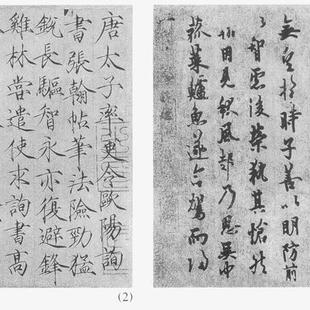 唐太子率更令歐陽詢
書張翰帖筆法險勁猛
銳長驅智永亦復避鋒
雞林嘗遣使求詢書高
(2)
無望於時子善以明防前
以智慮後榮執其愴然
翰因見秋風起乃思吳中
菰菜鱸魚遂命駕而歸